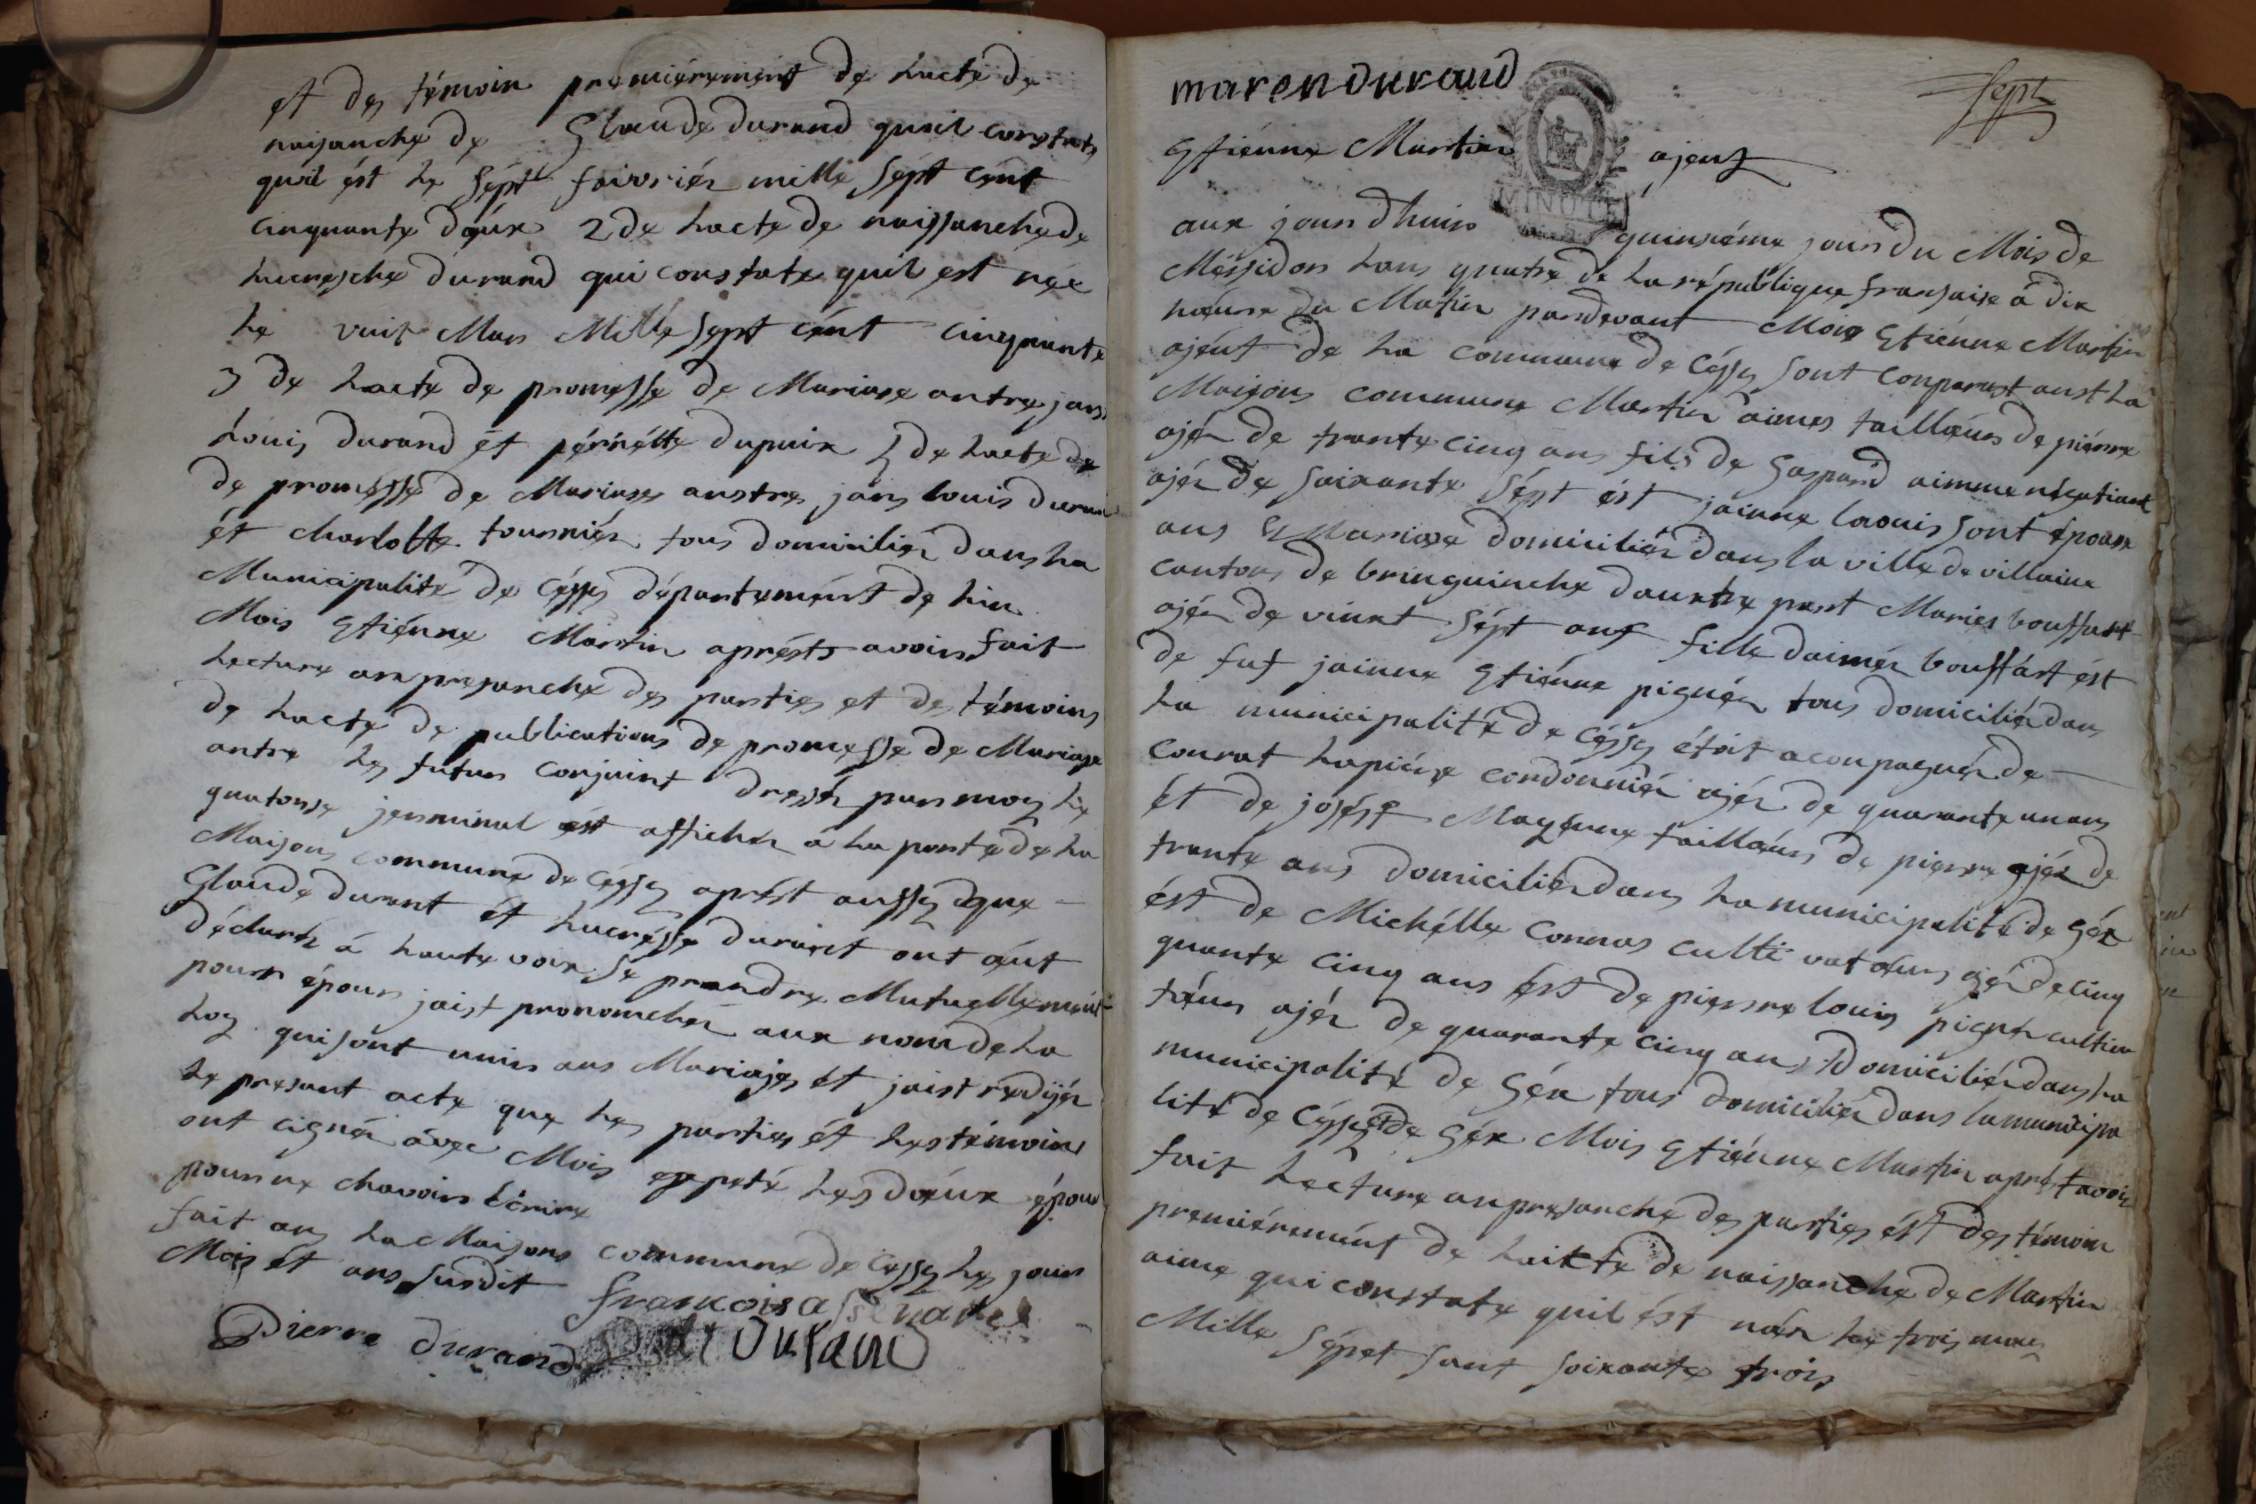 et des témoin premièrement de lacte de
naisanche de Glaude durand quil constate
quil ést le sépt faivriér mille sépt cént
cinquante doúx 2 de lacte de naissanche de
lucresche durand qui constate quil est née
le vuit Mars Mille sept cént cinquante
3 de lacte de promesse de Mariase antre jans
louis durand ét pérnétte dupuix 4 de lacte de
de promésse de Mariages anstre jans louis durand
ét charlotte tourniér tous domiciliér dans la
Municipalité de Céssy départemént de lin
Mois Etiénne Martin aprésts avoirs fait
lecture anpresanche des parties et des témoins
de lacte de publications de promesse de Mariage
antre les futurs conjoint dressér parmoy le
quatorse jerminal ést affichér á la porte de la
Maisons commune de Céssy aprést aussy que
Glaude durant ét lucrésse durant ont áut
déclarér á haute voix se prandre Mutuellemént
pour épour jaist prononchér aux nom de la
loy quisont unis ans Mariajes ét jaist redijér
le presant acte que les parties ét les témoins
ont cignér ávec Mois epepté les doúux époux
pour ne chavoirs Écrire
fait ans la Maisons commune de Cessy les jours
Mois ét ans susdit francois assenatel
Pierre durand durand
maren durand
sept
Etiénne Martin ajent
MINUTE
aux jourdhuis quinsiéme jours du Mois de
Méssidors lans quatre de la républigue fransaise á dix
heure du Matin pardevant Mois Etiénne Martin
ajént de la commune de Céssy sont conparust anst la
Maisons commune Martin aimes tailleurs de piérre
ajér de trante cinq ans fils de Gaspard aimme négatiant
ajér de soixante sépt ést jainne laouis sont épouse
ans Mariase domiciliér dans la ville de villaine
cantons de bringuinche dautre part Maries bouffart
ajér de vinnt sépt ans fille daimér bouffart ést
de fut jainne Etiénne pignér tous domiciliér dans
la municipalité de Céssy étoit aconpagnér de
Conrat lapiére cordonniér ajér de quarante unans
ét de joséph Mayénne tailleurs de pierre ajér de
trante ans domiciliér dans la municipalité de Géx
ést de Michélle connas cultivateurs ajér de cinq
quante cinq ans ést de pierre louis pignér cultiva
teurs ajér de quarante cinq ans domiciliér dans la
municipalité de Géx tous domiciliér dans la municipa
lité de Céssy et de Géx Mois Etiénne Martin aprést avoir
fait lecture anpresanche des parties ést des témoin
premiérémént de laitte de naissanche de Martin
aime qui constate quil ést nér le trois mars
Mille sépt sant soixante trois